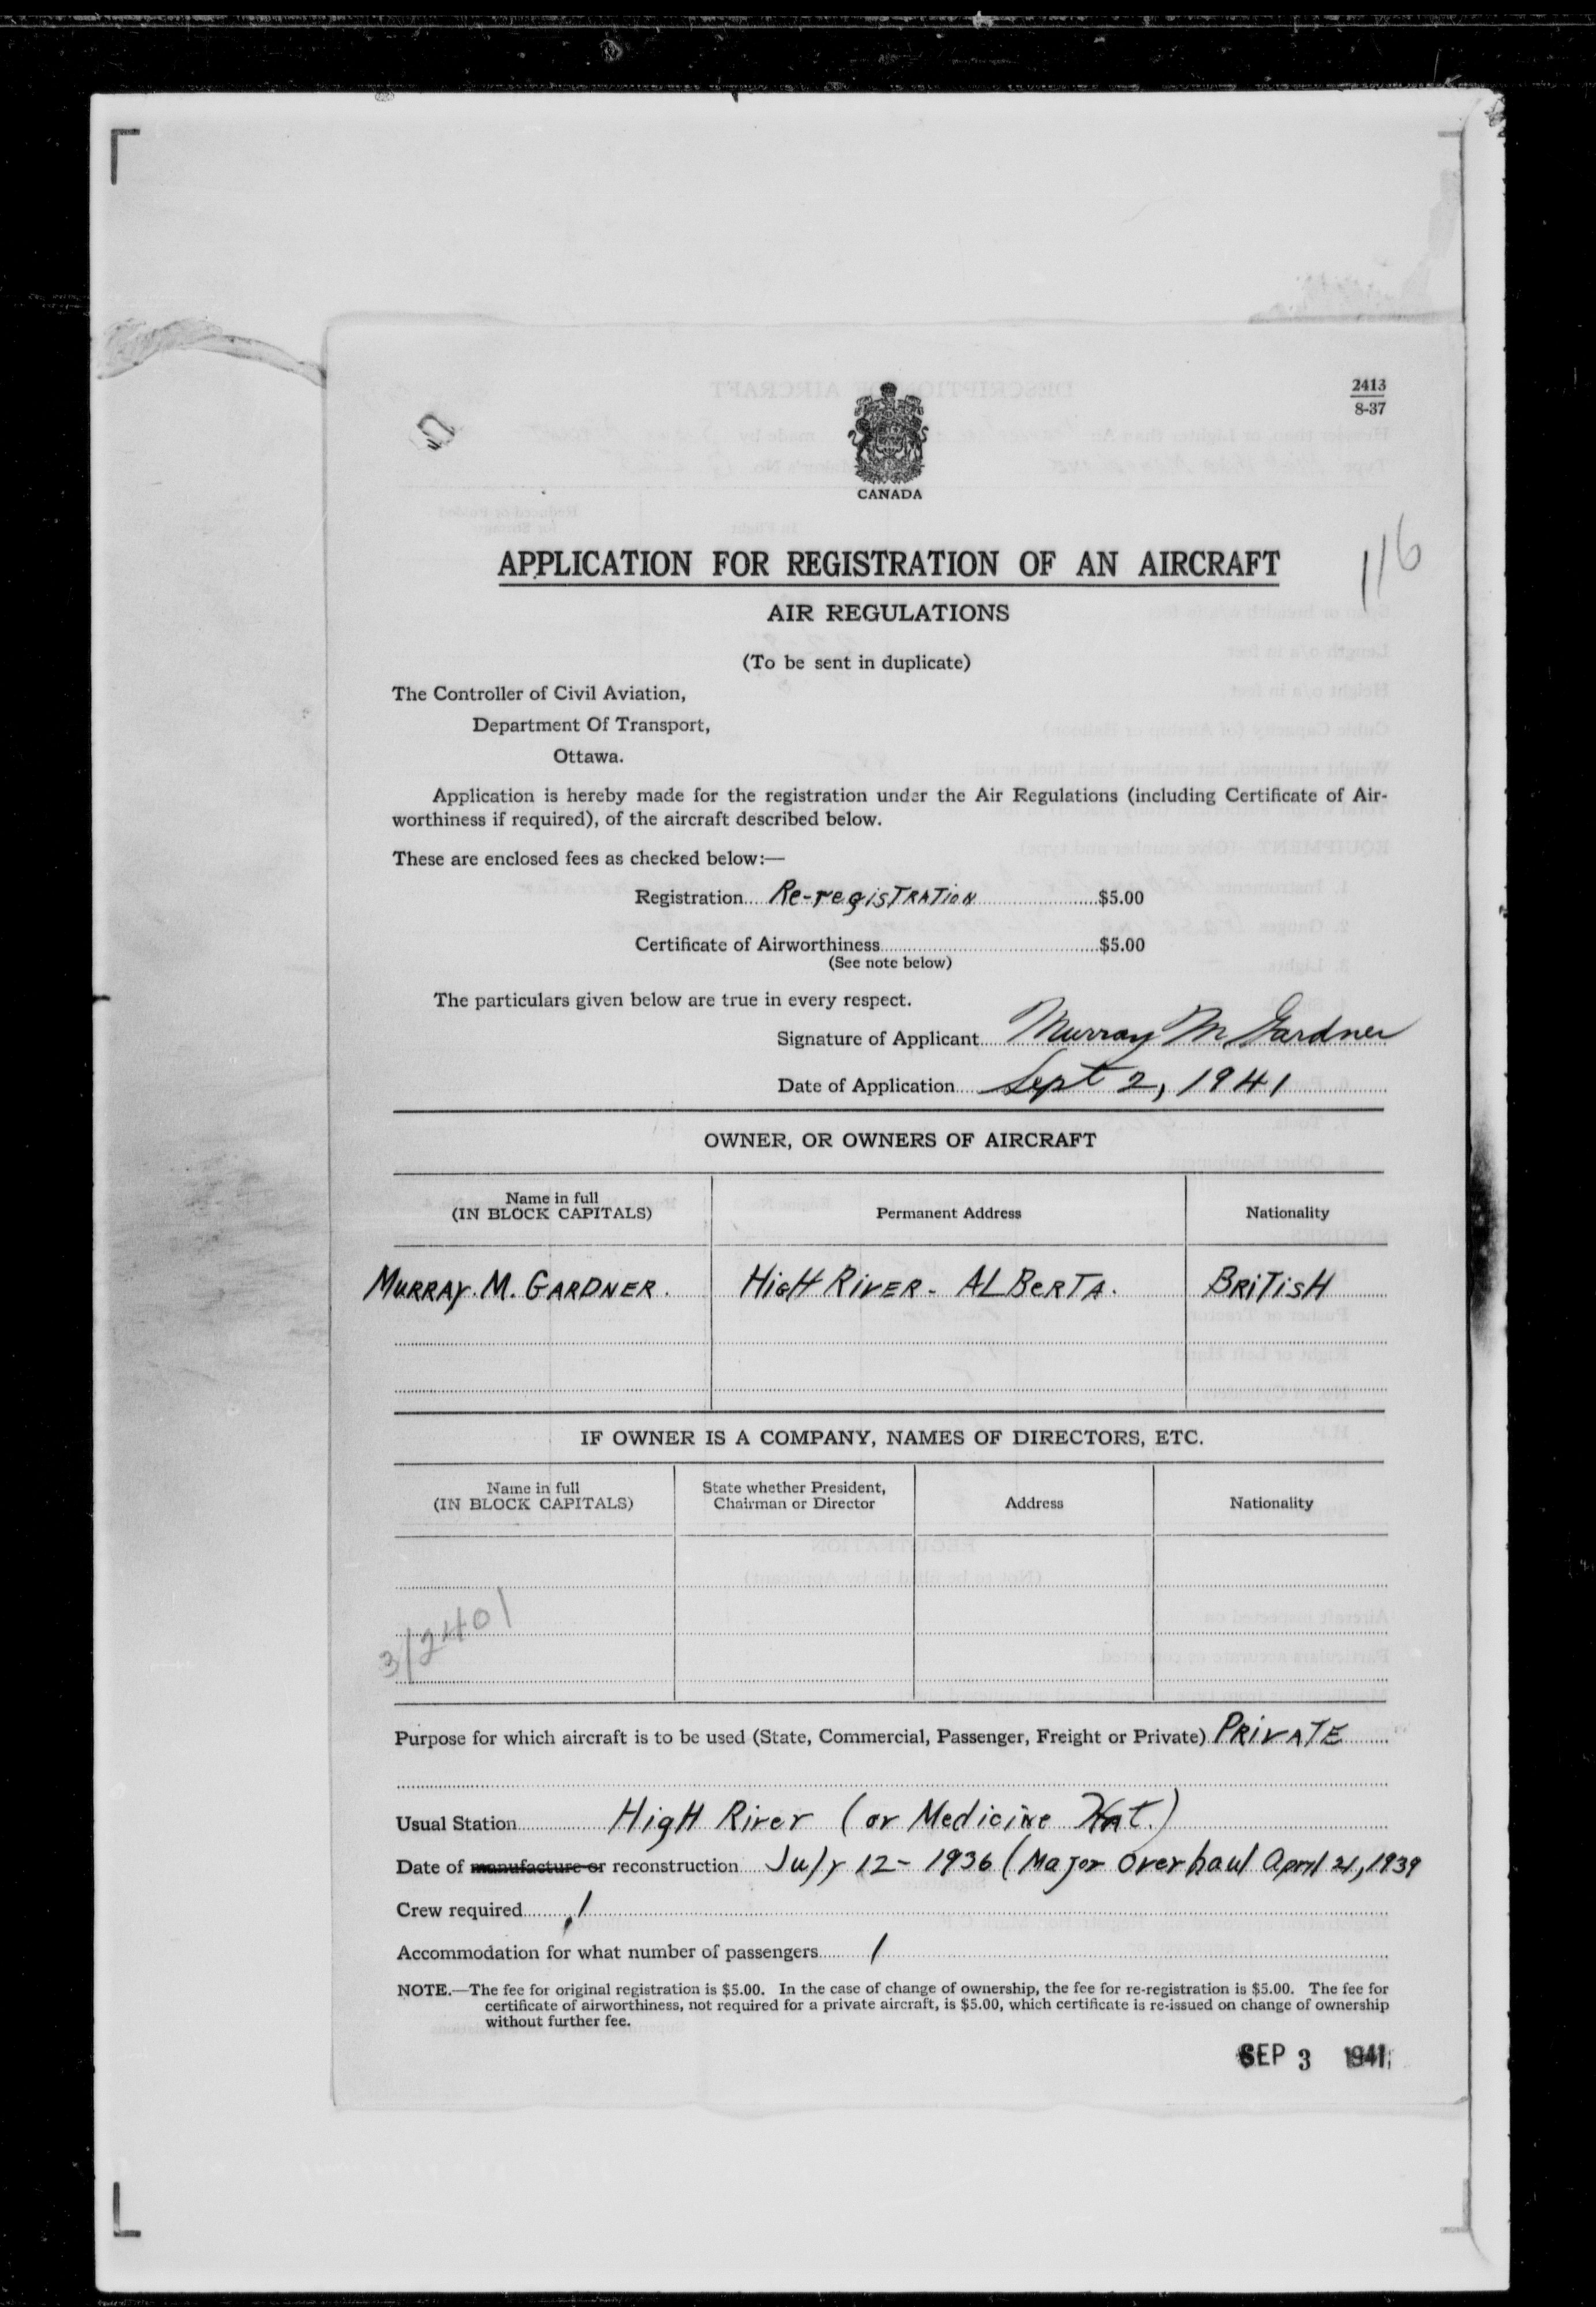 2413
8-37
CANADA
116
APPLICATION FOR REGISTRATION OF AN AIRCRAFT
AIR REGULATIONS
(To be sent in duplicate)
The Controller of Civil Aviation,
Department Of Transport,
Ottawa.
Application is hereby made for the registration under the Air Regulations (including Certificate of Air-
worthiness if required), of the aircraft described below.
These are enclosed fees as checked below:—
Registration Re-registration $5.00
Certificate of Airworthiness $5.00
(See note below)
The particulars given below are true in every respect.
Signature of Applicant Murray M. Gardner
Date of Application Sept 2, 1941
OWNER, OR OWNERS OF AIRCRAFT
Name in full
(IN BLOCK CAPITALS) Permanent Address Nationality
MURRAY. M. GARDNER. HIGH RIVER - ALBERTA. BRITISH
IF OWNER IS A COMPANY, NAMES OF DIRECTORS, ETC.
Name in full State whether President,
(IN BLOCK CAPITALS) Chairman or Director Address Nationality
3/2401
Purpose for which aircraft is to be used (State, Commercial, Passenger, Freight or Private) PRIVATE
Usual Station High River (or Medicine Hat.)
Date of manufacture or reconstruction July 12 - 1936 (Major overhaul April 21, 1939
Crew required 1
Accommodation for what number of passengers 1
NOTE.—The fee for original registration is $5.00. In the case of change of ownership, the fee for re-registration is $5.00. The fee for
certificate of airworthiness, not required for a private aircraft, is $5.00, which certificate is re-issued on change of ownership
without further fee.
SEP 3 1941